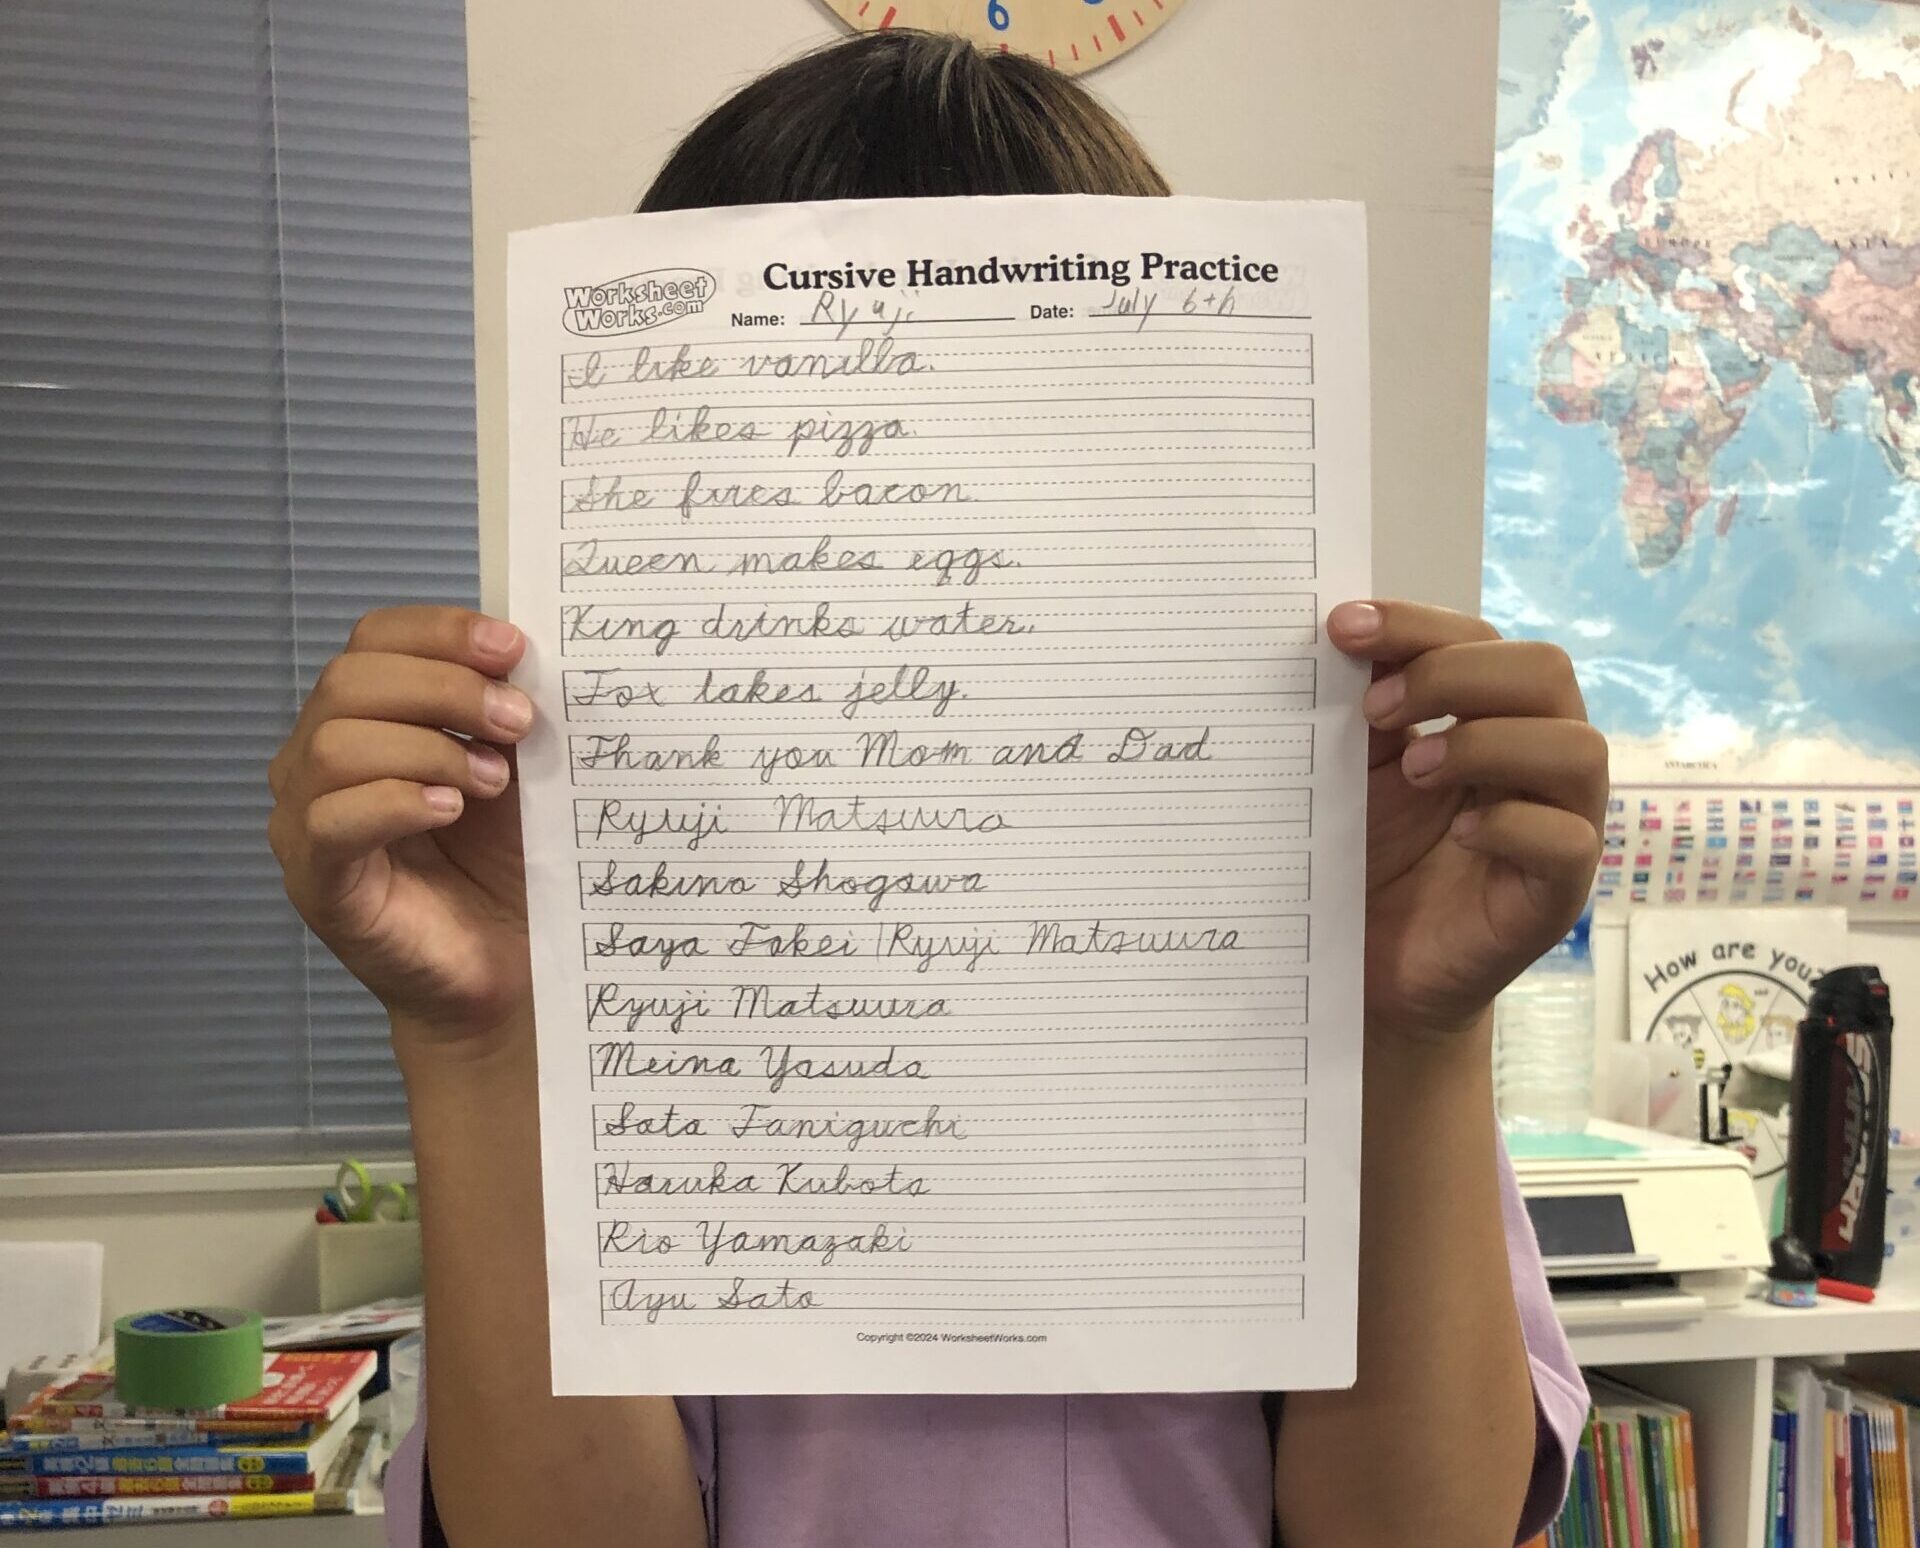 6
Worksheet
Works.com
Cursive Handwriting Practice
Name: Ryuji Date: July 6th
I like vanilla.
He likes pizza.
She fires bacon.
Queen makes eggs.
King drinks water.
Fox takes jelly.
Thank you Mom and Dad
Ryuji Matsuura
Sakino Shogawa
Saya Takei | Ryuji Matsuura
Ryuji Matsuura
Meina Yasuda
Sata Taniguchi
Haruka Kubota
Rio Yamazaki
Ayu Sato
Copyright ©2024 WorksheetWorks.com
EUROPE
ASIA
AFRICA
ANTARCTICA
How are you?